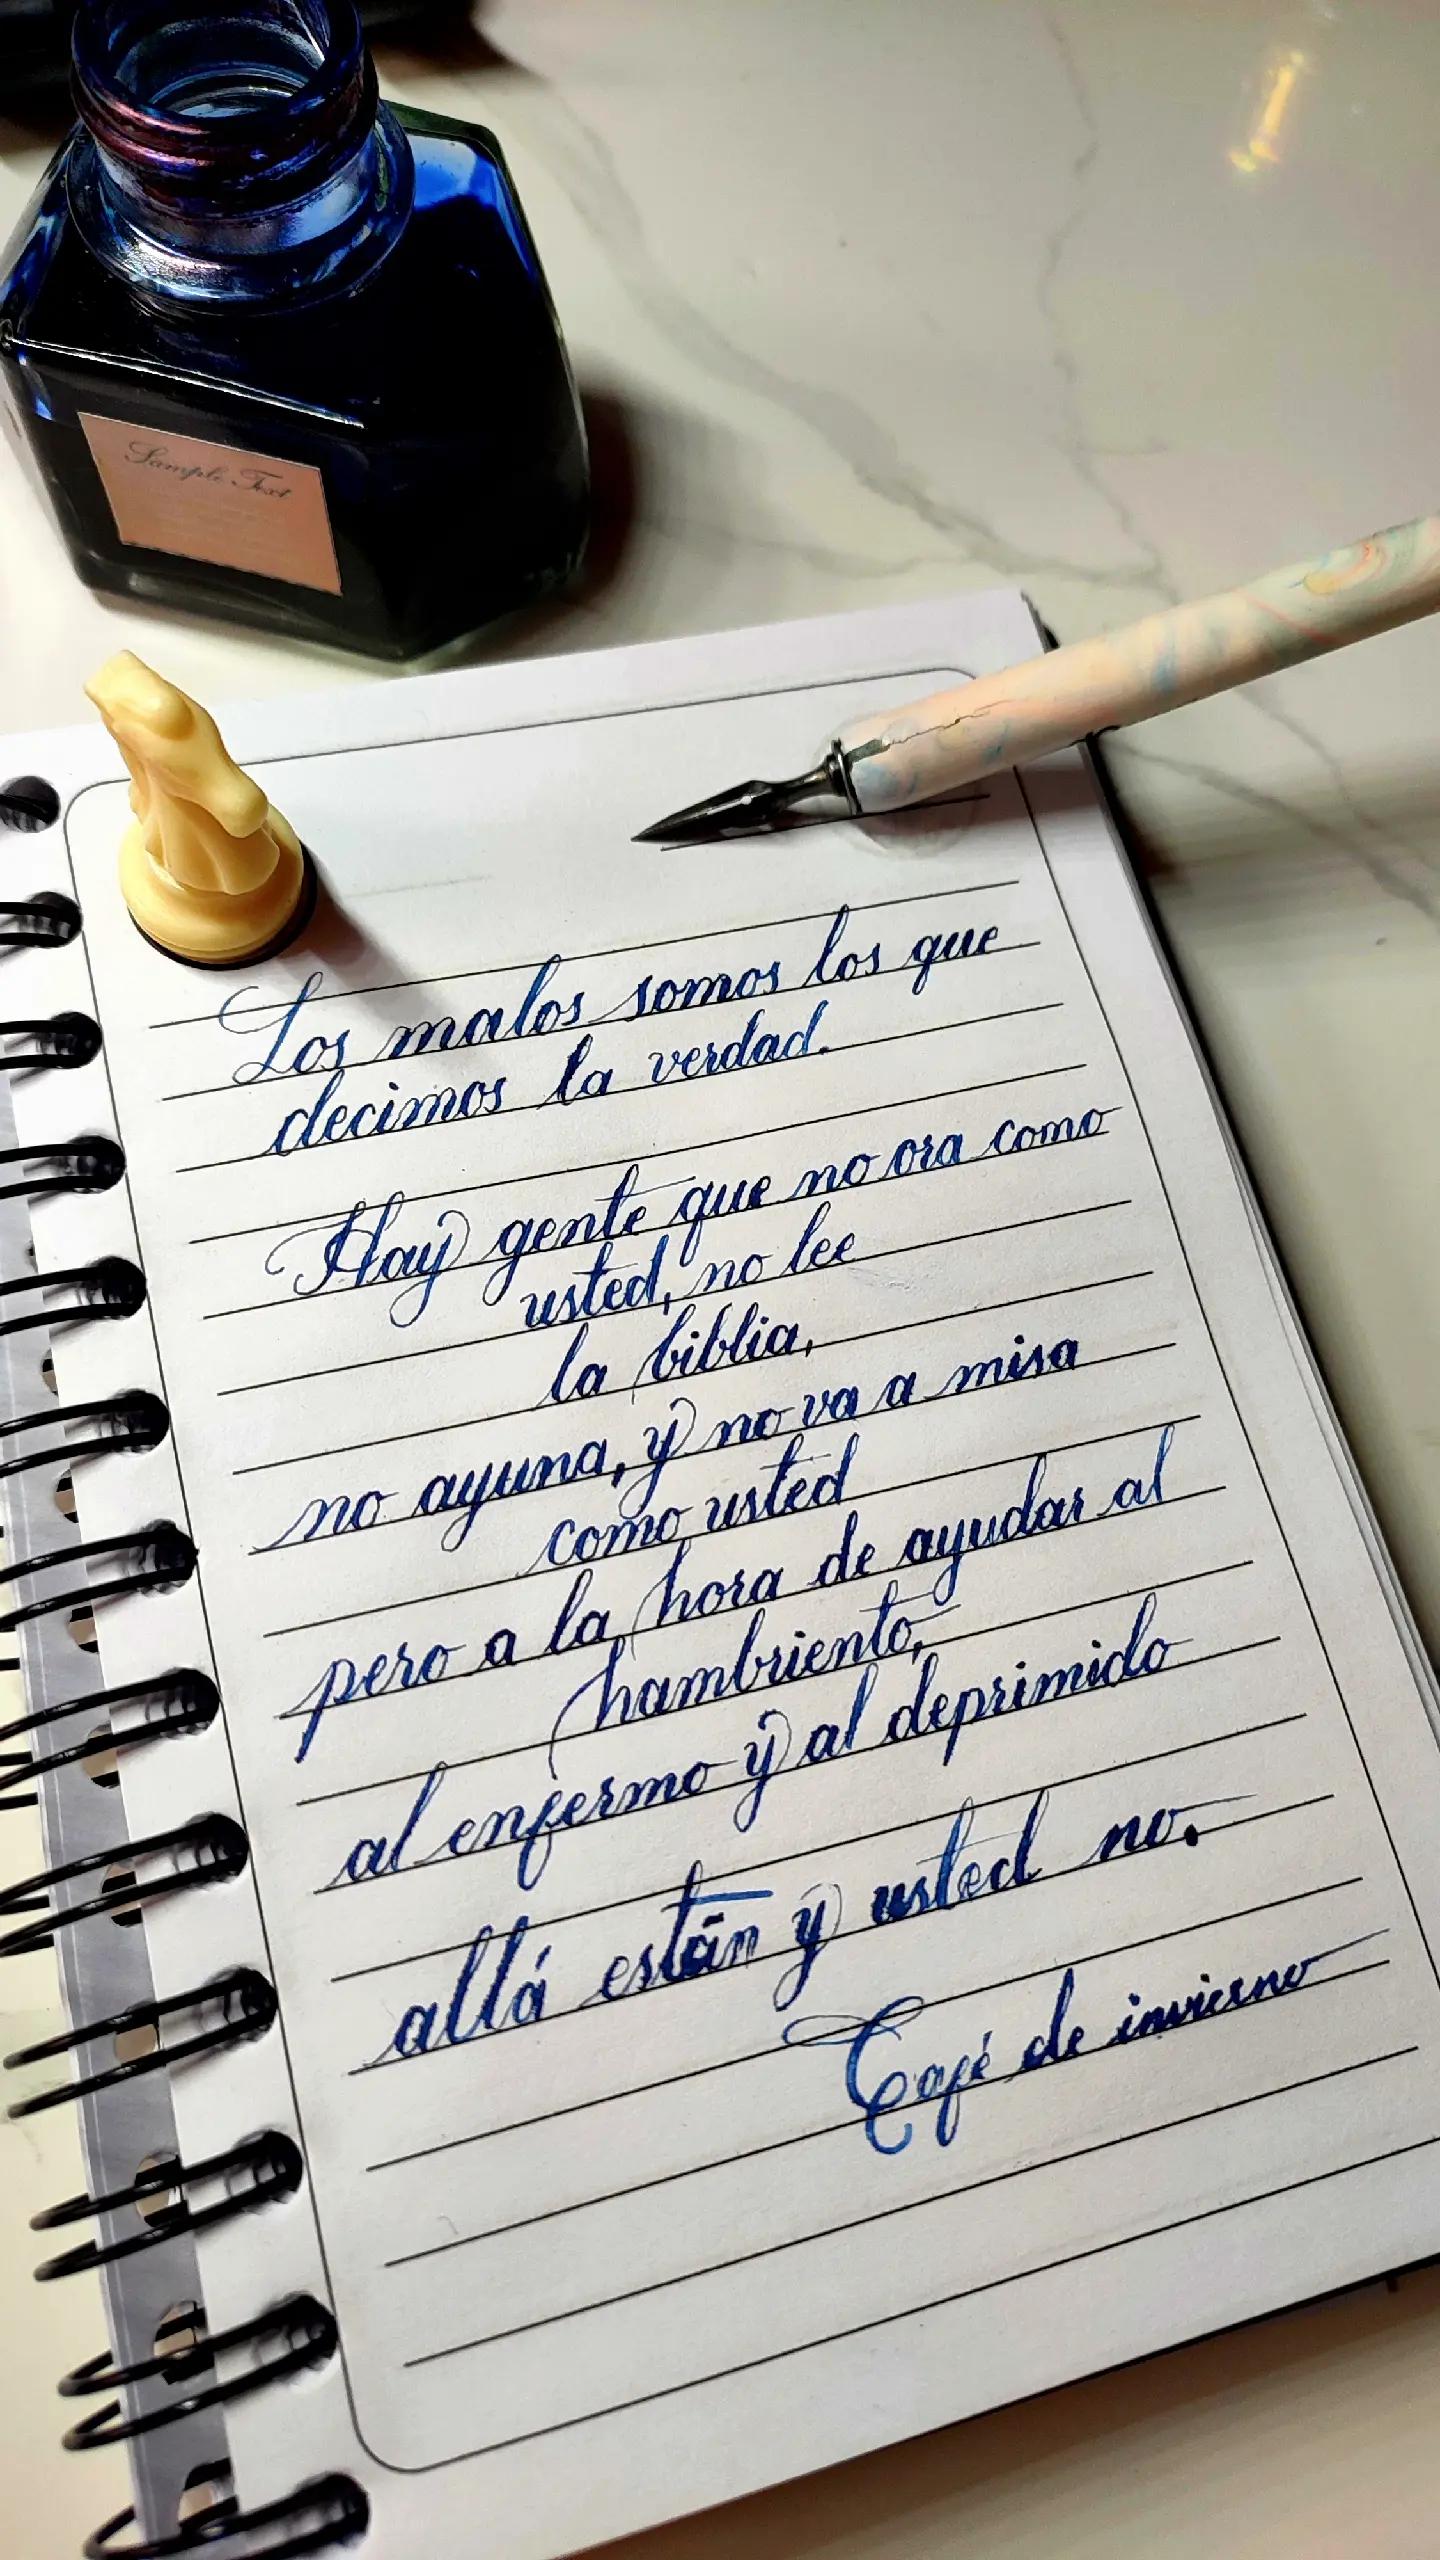 Sample Text
Los malos somos los que
decimos la verdad.
Hay gente que no ora como
usted, no lee
la biblia,
no ayuna, y no va a misa
como usted
pero a la hora de ayudar al
hambriento,
al enfermo y al deprimido
allá están y usted no.
Café de invierno